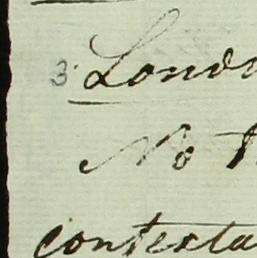 3. Lond
No
contesta